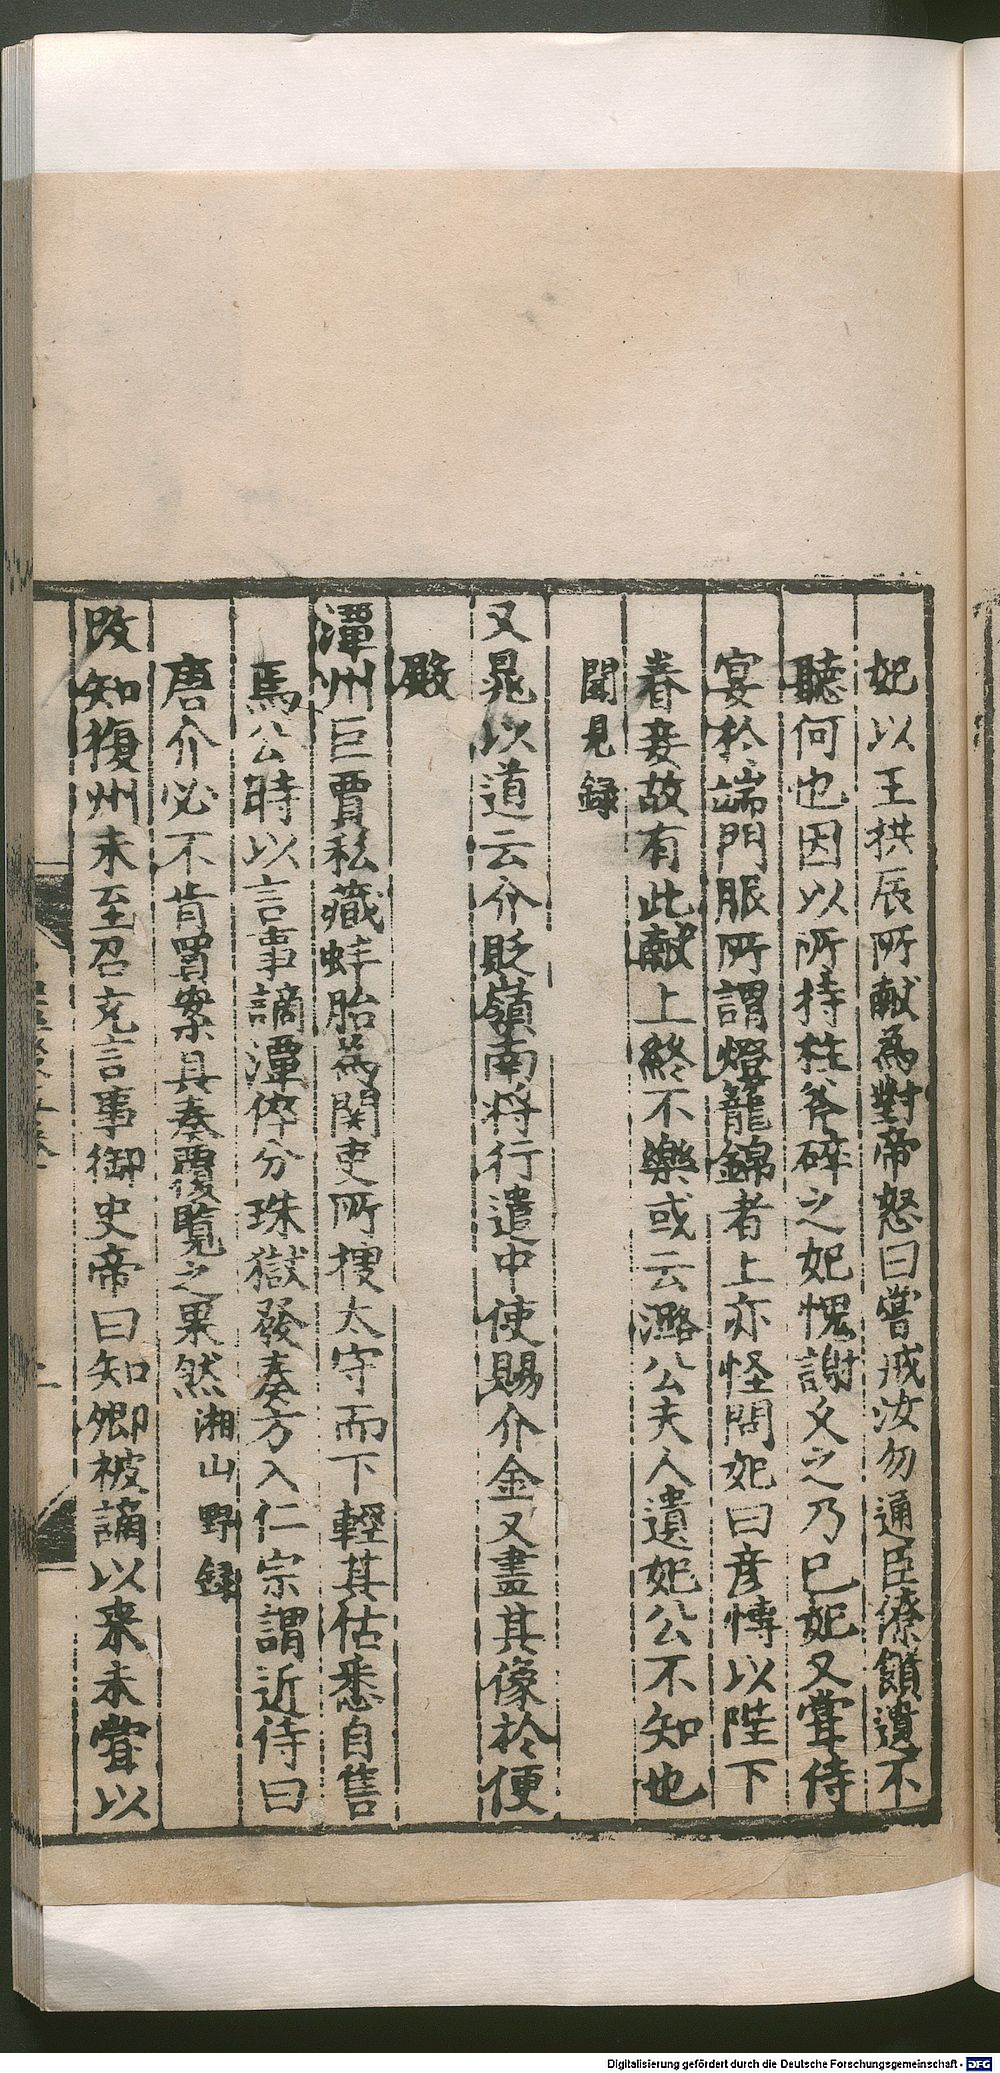 妃以王拱辰所献為對帝怒曰嘗戒汝勿通臣僚饋遺不
聽何也因以所持柱斧碎之妃愧謝乂之乃已妃又甞侍
宴於端門服所謂燈籠錦者上亦怪問妃曰彦愽以陛下
眷妾故有此献上終不樂或云潞公夫人遺妃公不知也
聞見録
又晁以道云介貶嶺南将行遣中使賜介金又畫其像於便
殿
潭州巨賈私藏蚌胎為関吏所搜太守而下輕其估悉自售
焉公時以言事謫潭倅分珠獄發奏方入仁宗謂近侍曰
唐介必不肯買案具奏覆覧之果然湘山野録
改知復州未至召充言事御史帝曰知卿被謫以来未甞以
Digitalisierung gefördert durch die Deutsche Forschungsgemeinschaft - DFG